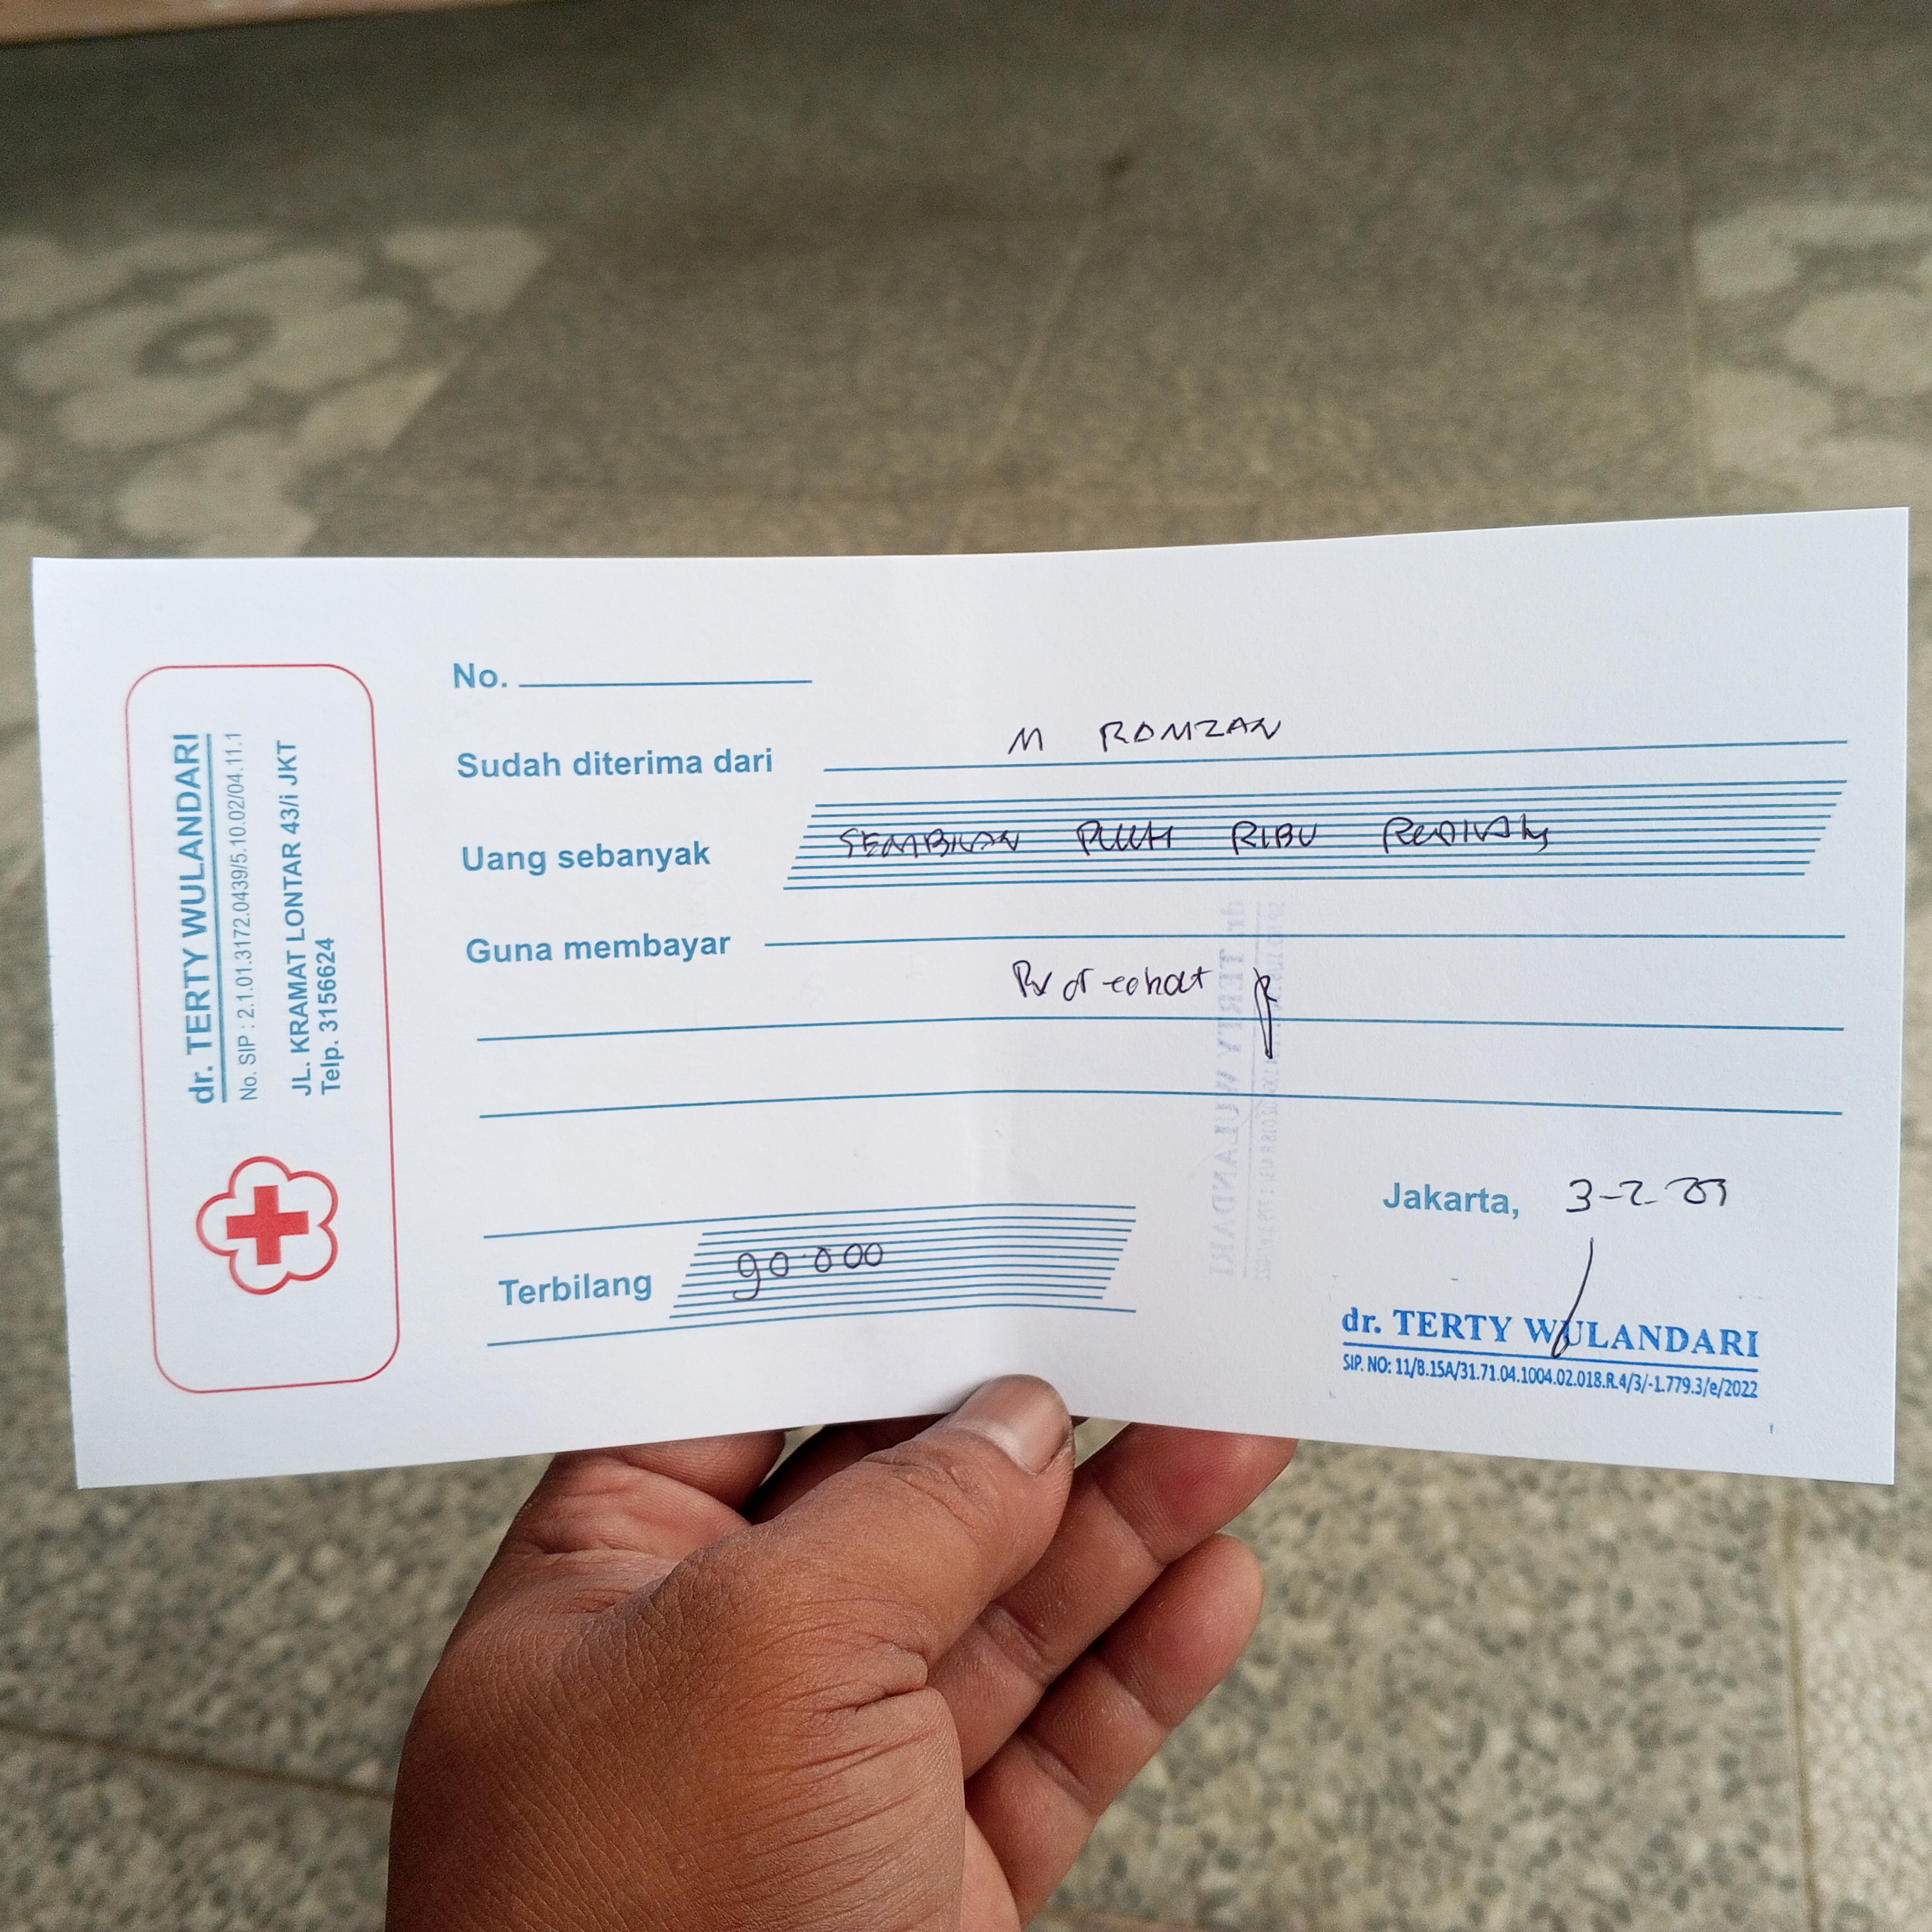 dr. TERTY WULANDARI
No. SIP : 2.1.01.3172.0439/5.10.02/04.11.1
JL. KRAMAT LONTAR 43/i JKT
Telp. 3156624
No.
Sudah diterima dari M ROMZAN
Uang sebanyak SEMBILAN PULUH RIBU
Guna membayar
Terbilang 90.000
Jakarta, 3-2-
dr. TERTY WULANDARI
SIP. NO: 11/B.15A/31.71.04.1004.02.018.R.4/3/-1.779.3/e/2022